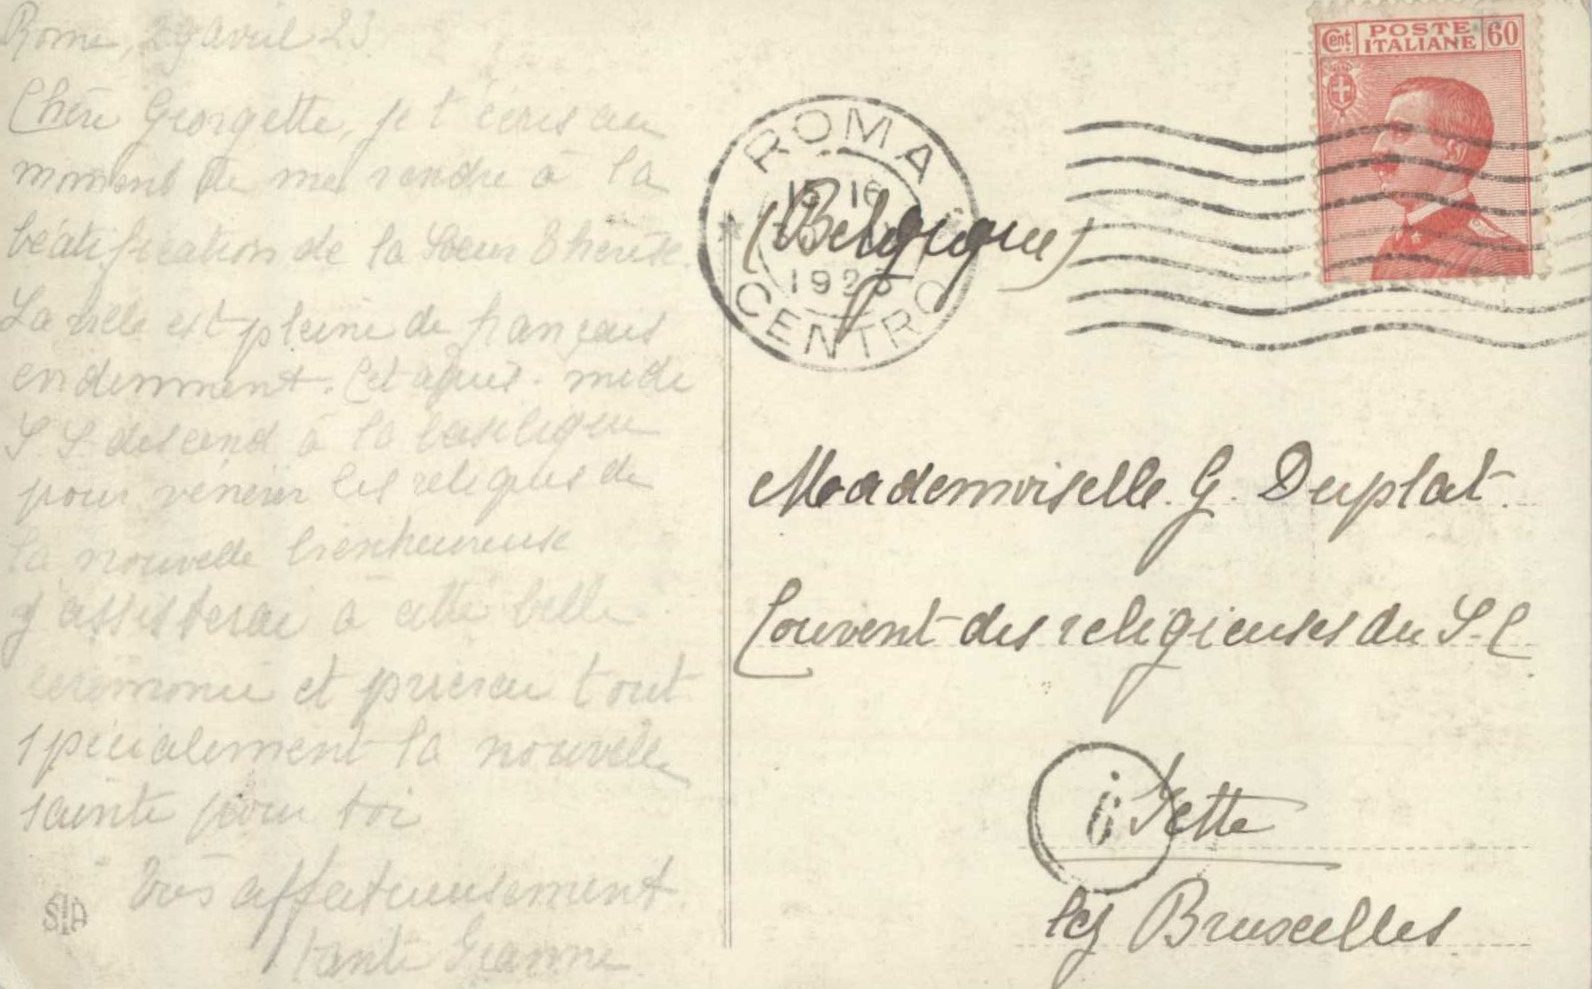 Rome, 29 avril 23.
Chère Georgette, je t'écris au
moment de me rendre à la
béatification de la Soeur Thérèse.
La ville est pleine de français
évidemment. Cet après-midi
S S descend à la basilique
pour vénérer les reliques de
la nouvelle bienheureuse
j'assisterai à cette belle
cérémonie et prierai tout
spécialement la nouvelle
sainte pour toi
Très affectueusement.
tante Jeanne
SIA
Cent POSTE ITALIANE 60
ROMA CENTRO
1923
(Belgique)
Mademoiselle G. Duplat.
Couvent des religieuses du S-C
6
Jette
lez Bruxelles